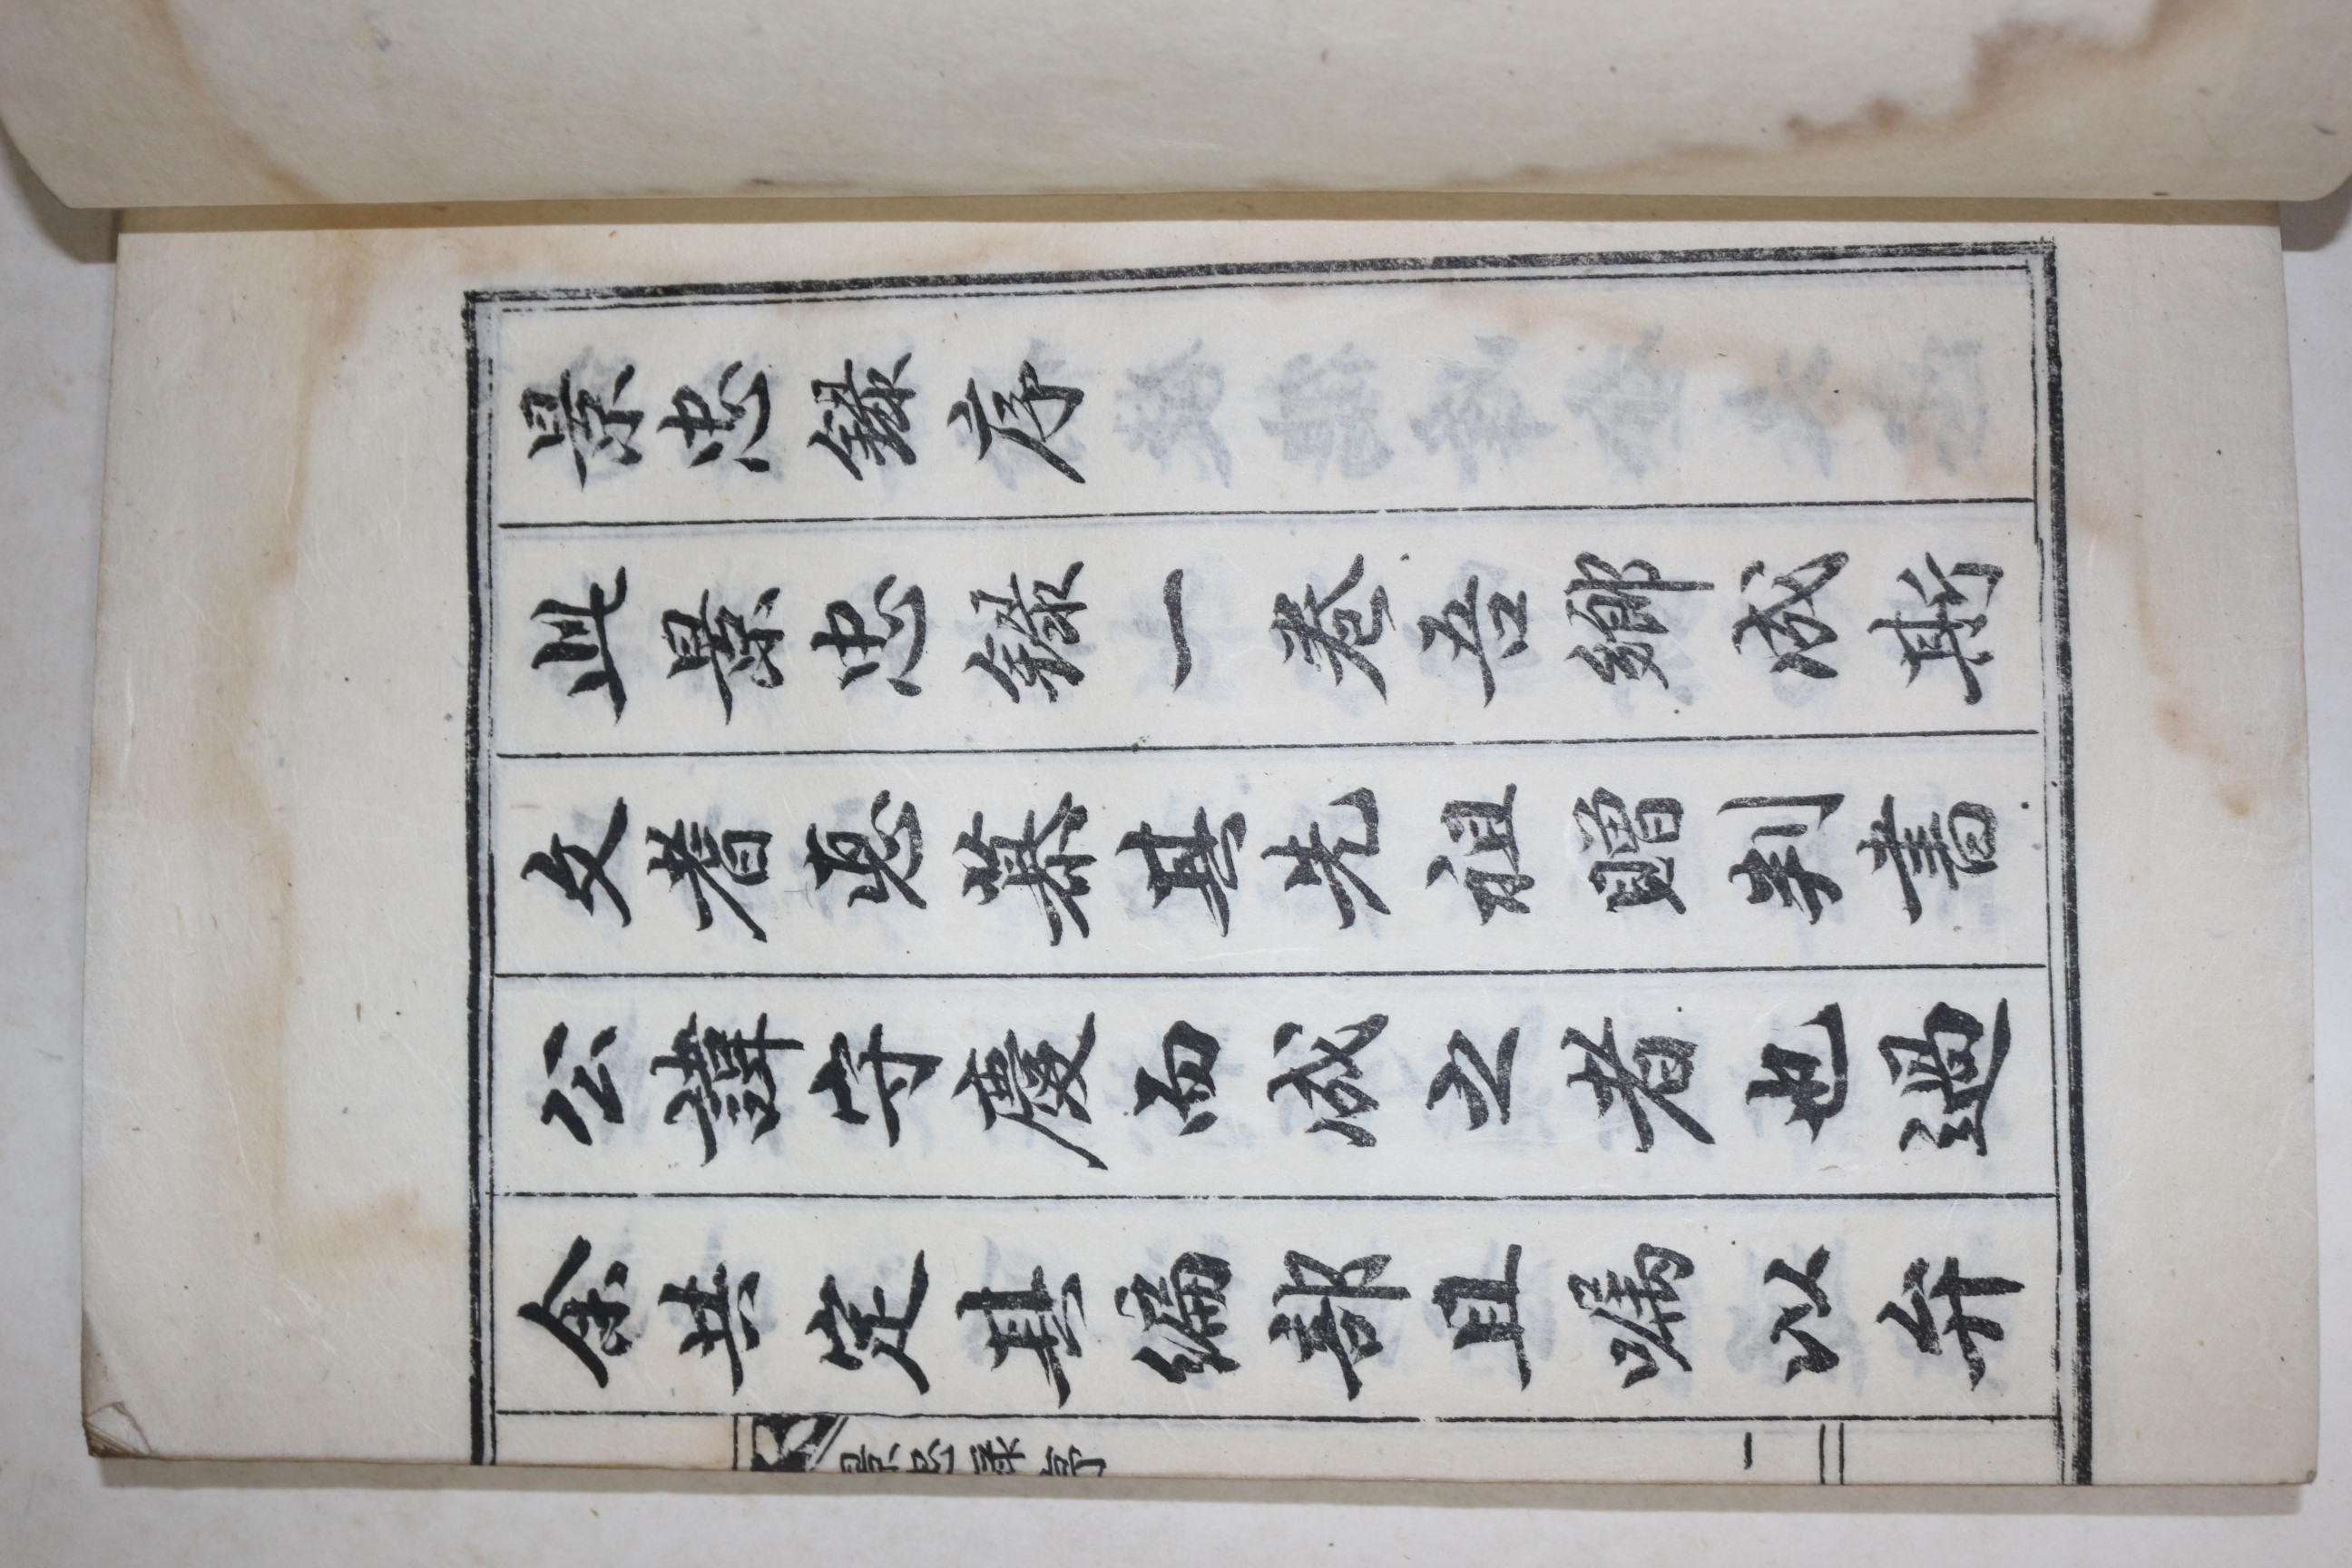 景忠録序
此景忠録一卷吾鄉成斯
文耆悳慕其先祖贈判書
公諱守慶而成之者也過
余共定其編部且嘱以弁
一